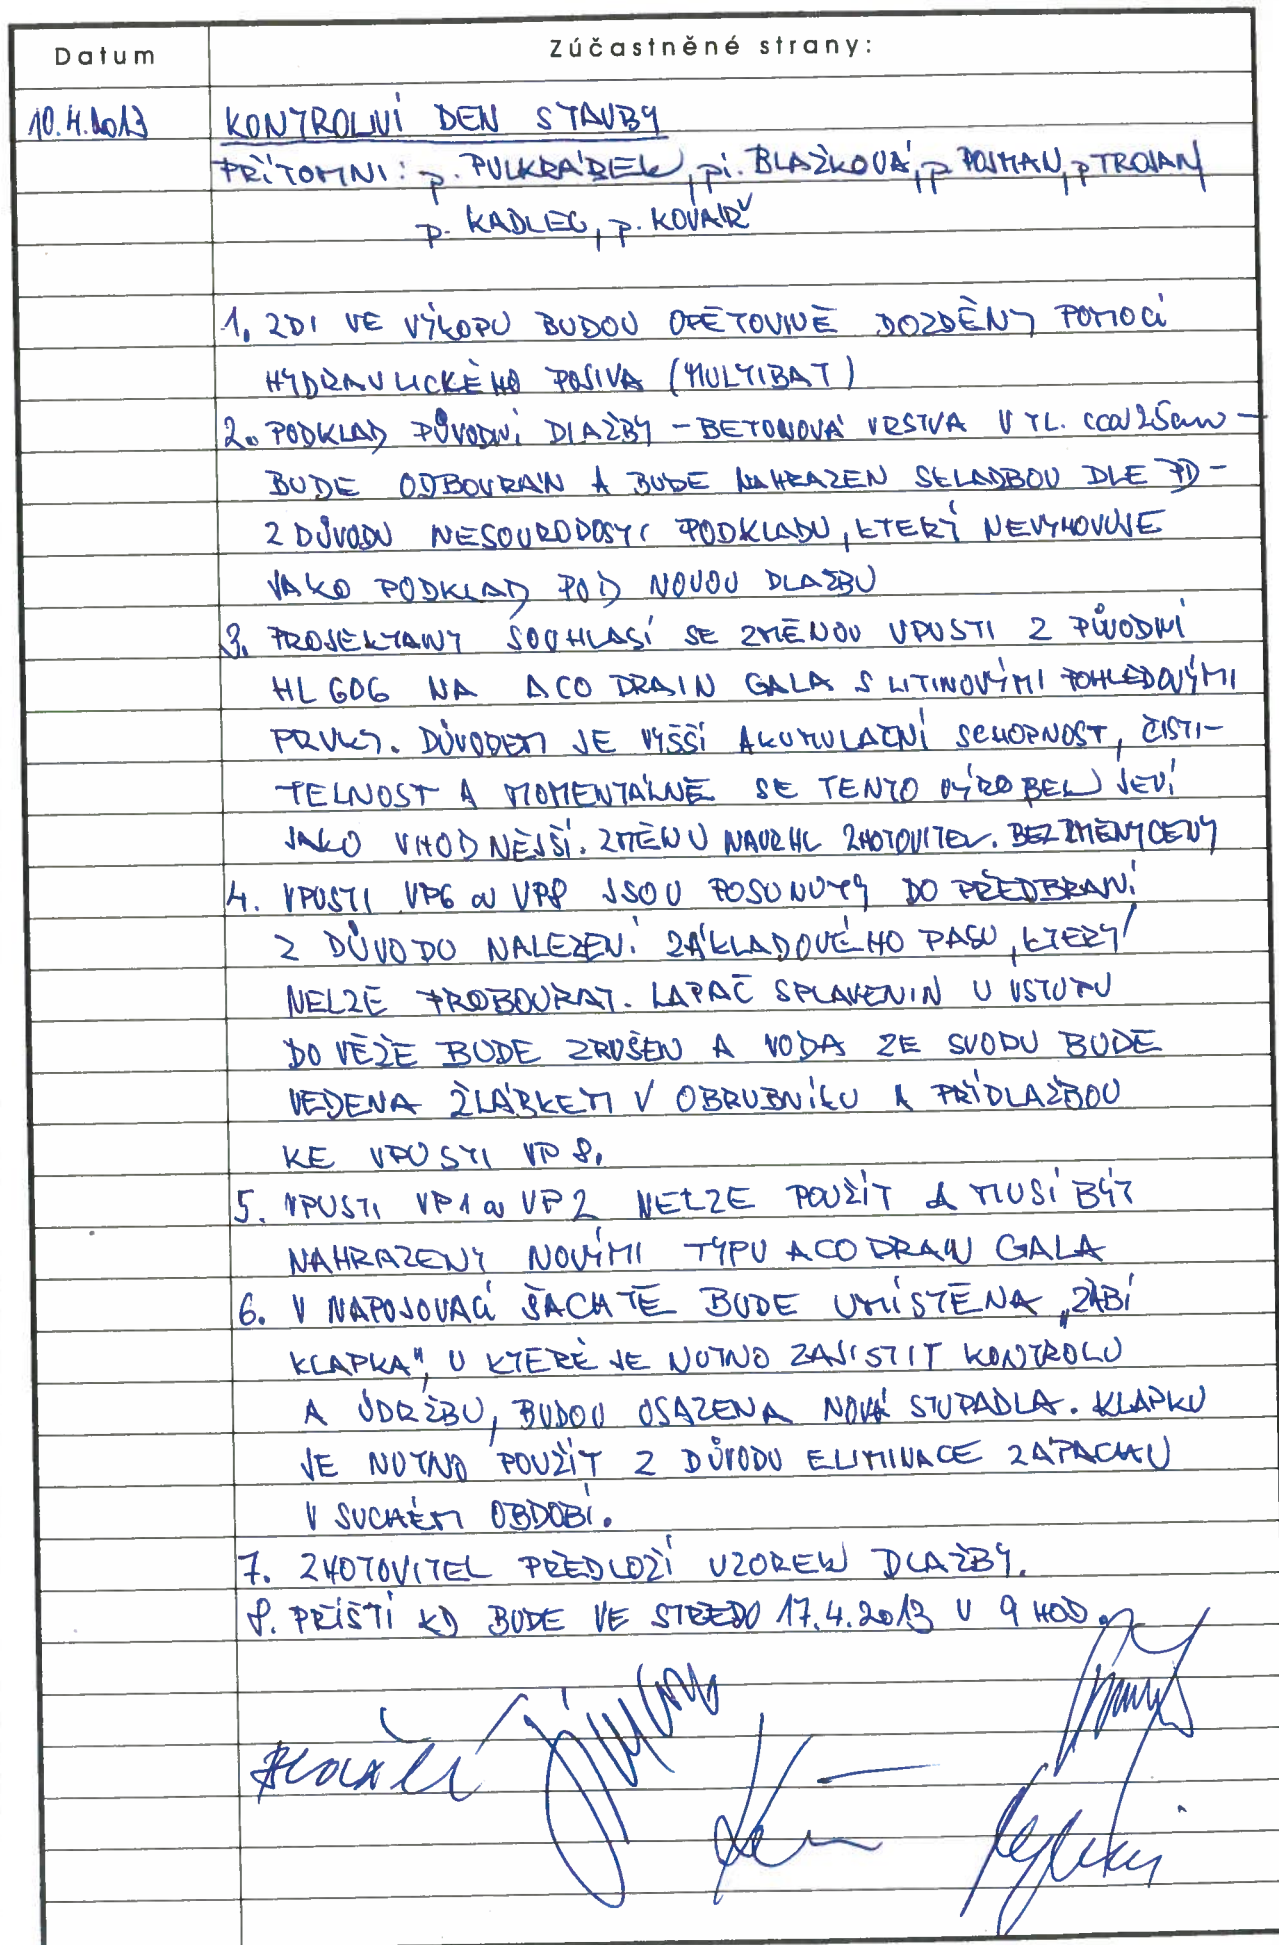 Datum
Zúčastněné strany:
10.4.2013
KONTROLNÍ DEN STAVBY
PŘÍTOMNI: p. PULKRÁBEK, pí. BLAŽKOVÁ, p POJMAN, p TROJAN
p. KADLEC, p. KOVÁŘ
1. ZDI VE VÝKOPU BUDOU OPĚTOVNĚ DOZDĚNY POMOCÍ
HYDRAULICKÉHO POJIVA (MULTIBAT)
2. PODKLAD PŮVODNÍ DLAŽBY - BETONOVÁ VRSTVA V TL. cca 25cm -
BUDE ODBOURÁN A BUDE NAHRAZEN SKLADBOU DLE PD -
Z DŮVODU NESOURODOSTI PODKLADU, KTERÝ NEVYHOVUJE
JAKO PODKLAD POD NOVOU DLAŽBU
3. PROJEKTANT SOUHLASÍ SE ZMĚNOU VPUSTI Z PŮVODNÍ
HL 606 NA ACO DRAIN GALA S LITINOVÝMI POHLEDOVÝMI
PRVKY. DŮVODEM JE VYŠŠÍ AKUMULAČNÍ SCHOPNOST, ČISTI-
TELNOST A MOMENTÁLNĚ SE TENTO VÝROBEK JEVÍ
JAKO VHODNĚJŠÍ. ZMĚNU NAVRHL ZHOTOVITEL. BEZ ZMĚNY CENY
4. VPUSTI VP6 a VP8 JSOU POSUNUTY DO PŘEDBRANÍ
Z DŮVODU NALEZENÍ ZÁKLADOVÉHO PASU, KTERÝ
NELZE PROBOURAT. LAPAČ SPLAVENIN U VSTUPU
DO VĚŽE BUDE ZRUŠEN A VODA ZE SVODU BUDE
VEDENA ŽLÁBKEM V OBRUBNÍKU A PŘÍDLAŽBOU
KE VPUSTI VP 8.
5. VPUSTI VP1 a VP2 NELZE POUŽÍT A MUSÍ BÝT
NAHRAZENY NOVÝMI TYPU ACO DRAIN GALA
6. V NAPOJOVACÍ ŠACHTĚ BUDE UMÍSTĚNA „ŽABÍ
KLAPKA", U KTERÉ JE NUTNO ZAJISTIT KONTROLU
A ÚDRŽBU, BUDOU OSAZENA NOVÁ STUPADLA. KLAPKU
JE NUTNO POUŽÍT Z DŮVODU ELIMINACE ZÁPACHU
V SUCHÉM OBDOBÍ.
7. ZHOTOVITEL PŘEDLOŽÍ VZOREK DLAŽBY.
8. PŘÍŠTÍ KD BUDE VE STŘEDU 17.4.2013 V 9 HOD.